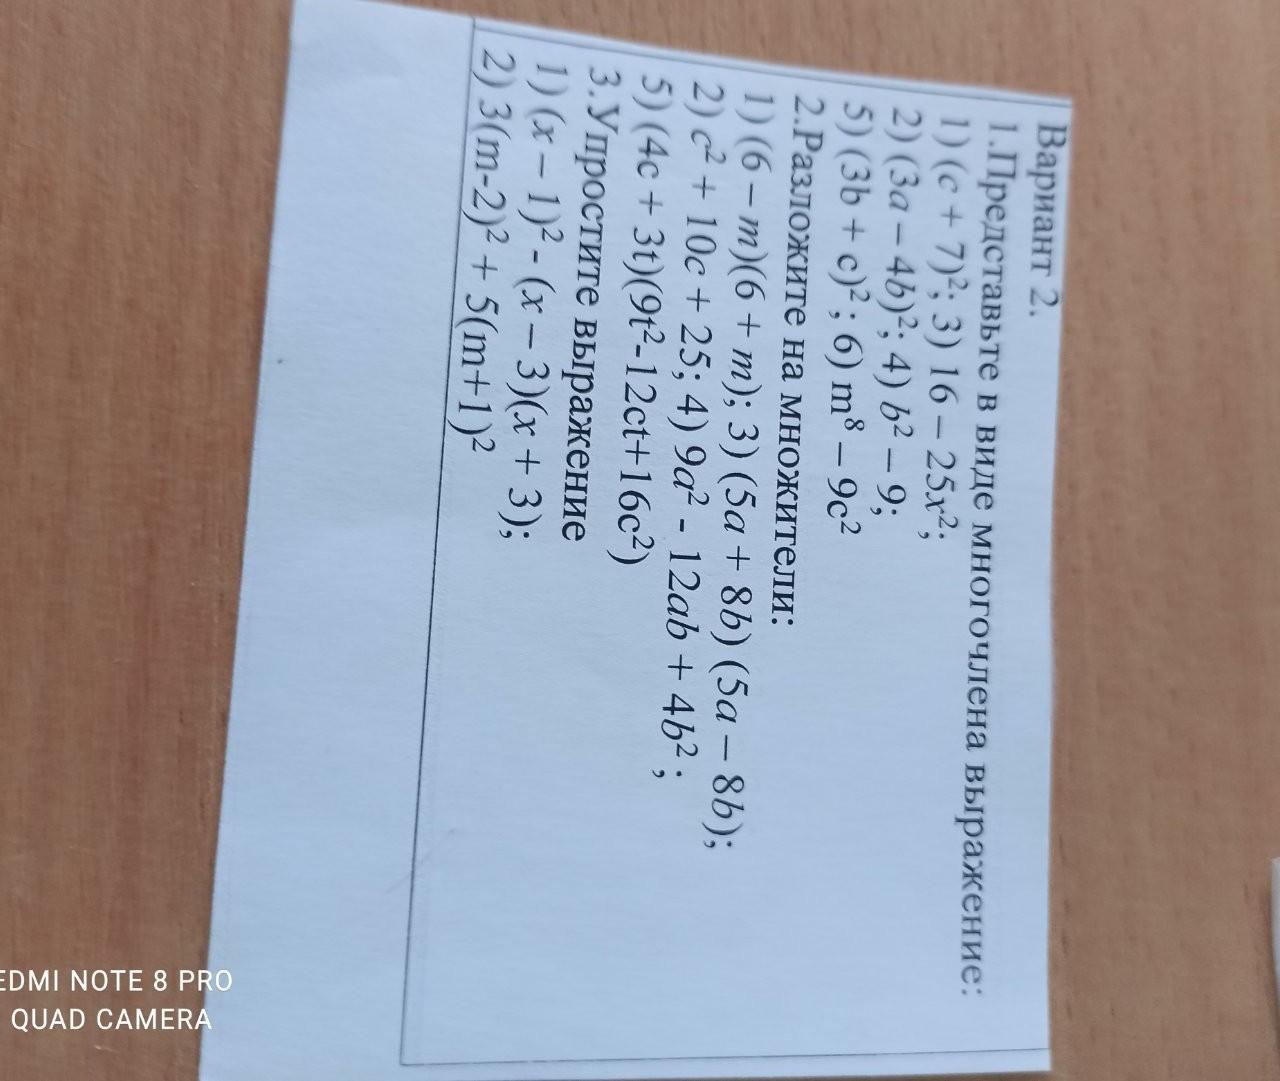 Вариант 2.
1.Представьте в виде многочлена выражение:
1) (c + 7)²; 3) 16 – 25x²;
2) (3a – 4b)²; 4) b² – 9;
5) (3b + c)² ; 6) m⁸ – 9c²
2.Разложите на множители:
1) (6 – m)(6 + m); 3) (5a + 8b) (5a – 8b);
2) c² + 10c + 25; 4) 9a² - 12ab + 4b²;
5) (4c + 3t)(9t²-12ct+16c²)
3.Упростите выражение
1) (x – 1)² - (x – 3)(x + 3);
2) 3(m-2)² + 5(m+1)²
EDMI NOTE 8 PRO
QUAD CAMERA